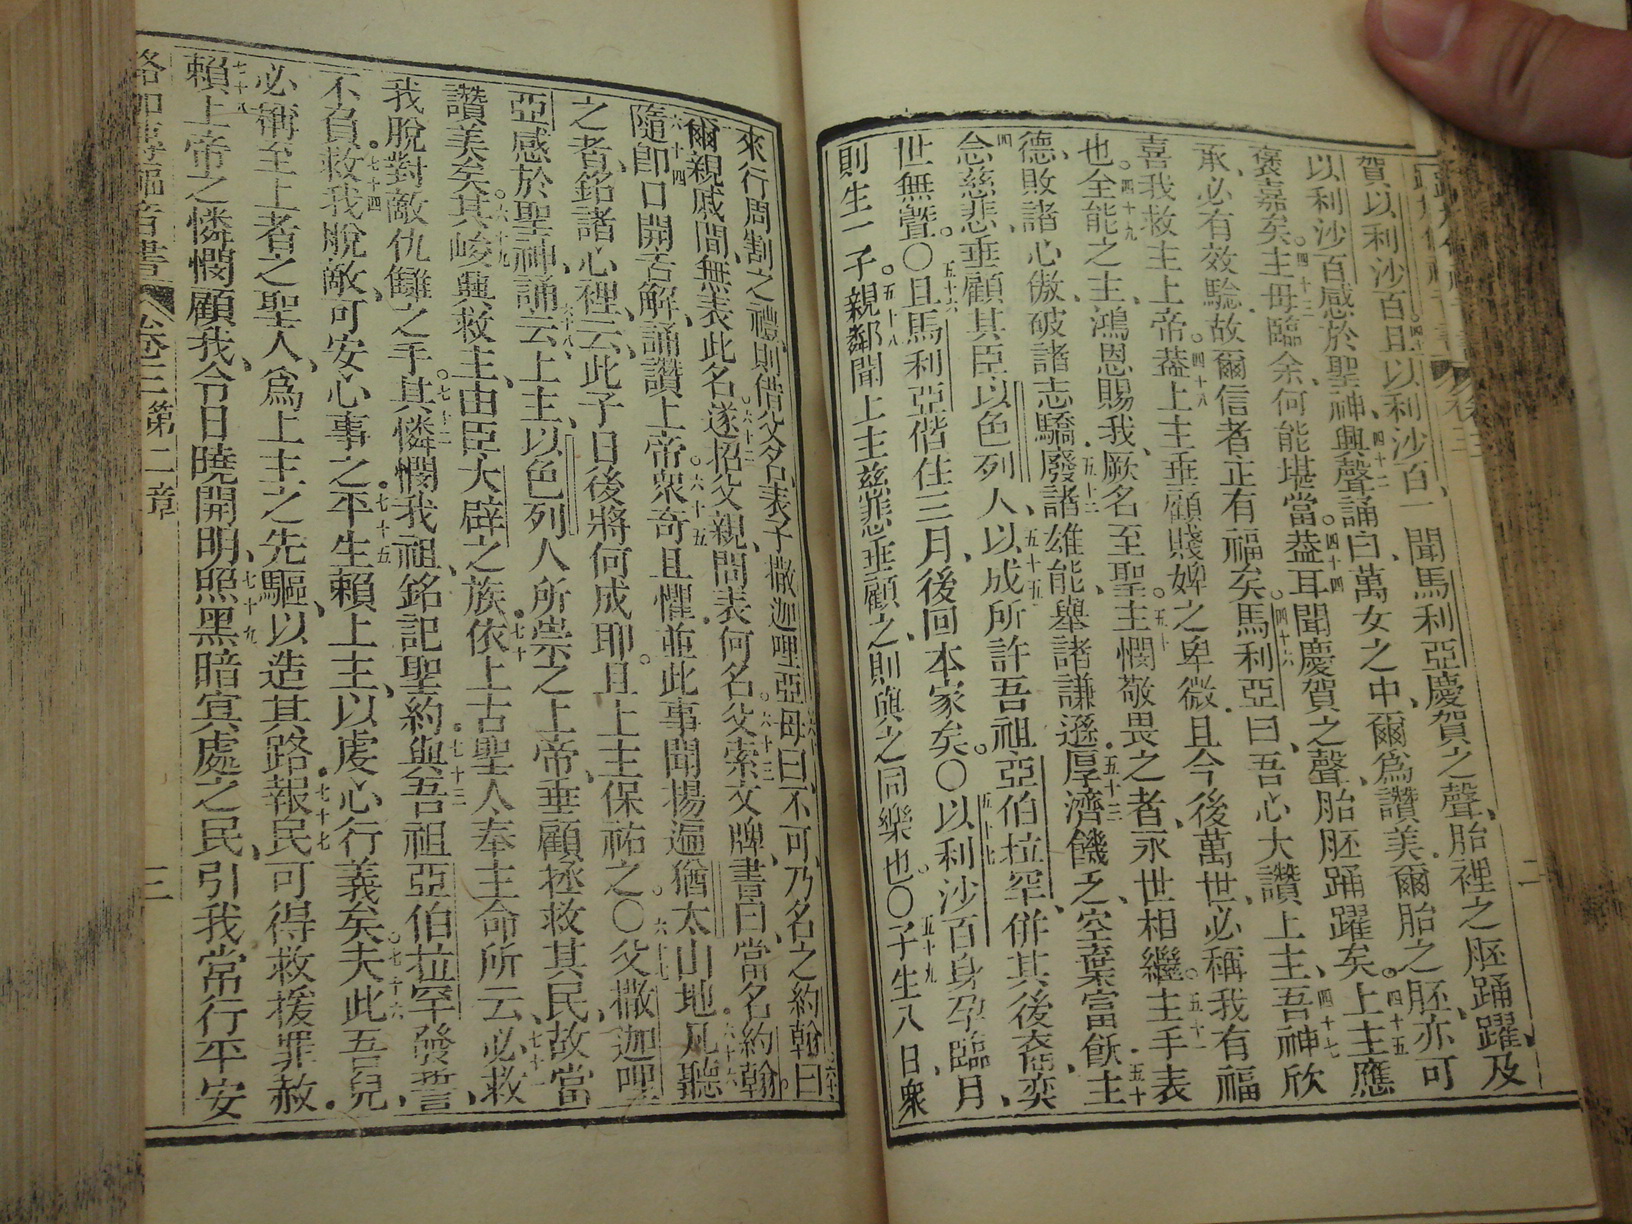 賀以利沙百且以利沙百一聞馬利亞慶賀之聲胎裡之胚踊躍及
以利沙百感於聖神興聲誦曰萬女之中爾爲讚美爾胎之胚亦可
褒嘉矣主母臨余何能堪當葢耳聞慶賀之聲胎胚踊躍矣上主應
承必有效騐故爾信者正有福矣馬利亞曰吾心大讚上主吾神欣
喜我救主上帝葢上主垂顧賤婢之卑微且今後萬世必稱我有福
也全能之主鴻恩賜我厥名至聖主憫敬畏之者永世相繼主手表
德敗諸心傲破諸志驕廢諸雄能舉諸謙遜厚濟饑乏空棄富飫主
念慈悲垂顧其臣以色列人以成所許吾祖亞伯拉罕併其後裔奕
世無曁〇且馬利亞偕住三月後回本家矣〇以利沙百身孕臨月
則生一子親鄰聞上主慈悲垂顧之則與之同樂也〇子生八日衆
來行周割之禮則偕父名表子撒迦哩亞母曰不可乃名之約翰曰
爾親戚間無表此名遂招父親問表何名父索文牌書曰當名約翰
隨卽口開舌解誦讚上帝衆奇且懼並此事聞揚遍猶太山地凡聽
之者銘諸心裡云此子日後將何成耶且上主保祐之〇父撒迦哩
亞感於聖神誦云上主以色列人所崇之上帝垂顧拯救其民故當
讚美矣其峻興救主由臣大辟之族依上古聖人奉主命所云必救
我脫對敵仇讎之手其憐憫我祖銘記聖約與吾祖亞伯拉罕發誓
不負救我脫敵可安心事之平生賴上主以虔心行義矣夫此吾兒
必稱至上者之聖人爲上主之先驅以造其路報民可得救援罪赦
賴上帝之憐憫顧我令日曉開明照黑暗冥處之民引我常行平安
路加傳福音書 卷三第二章 三